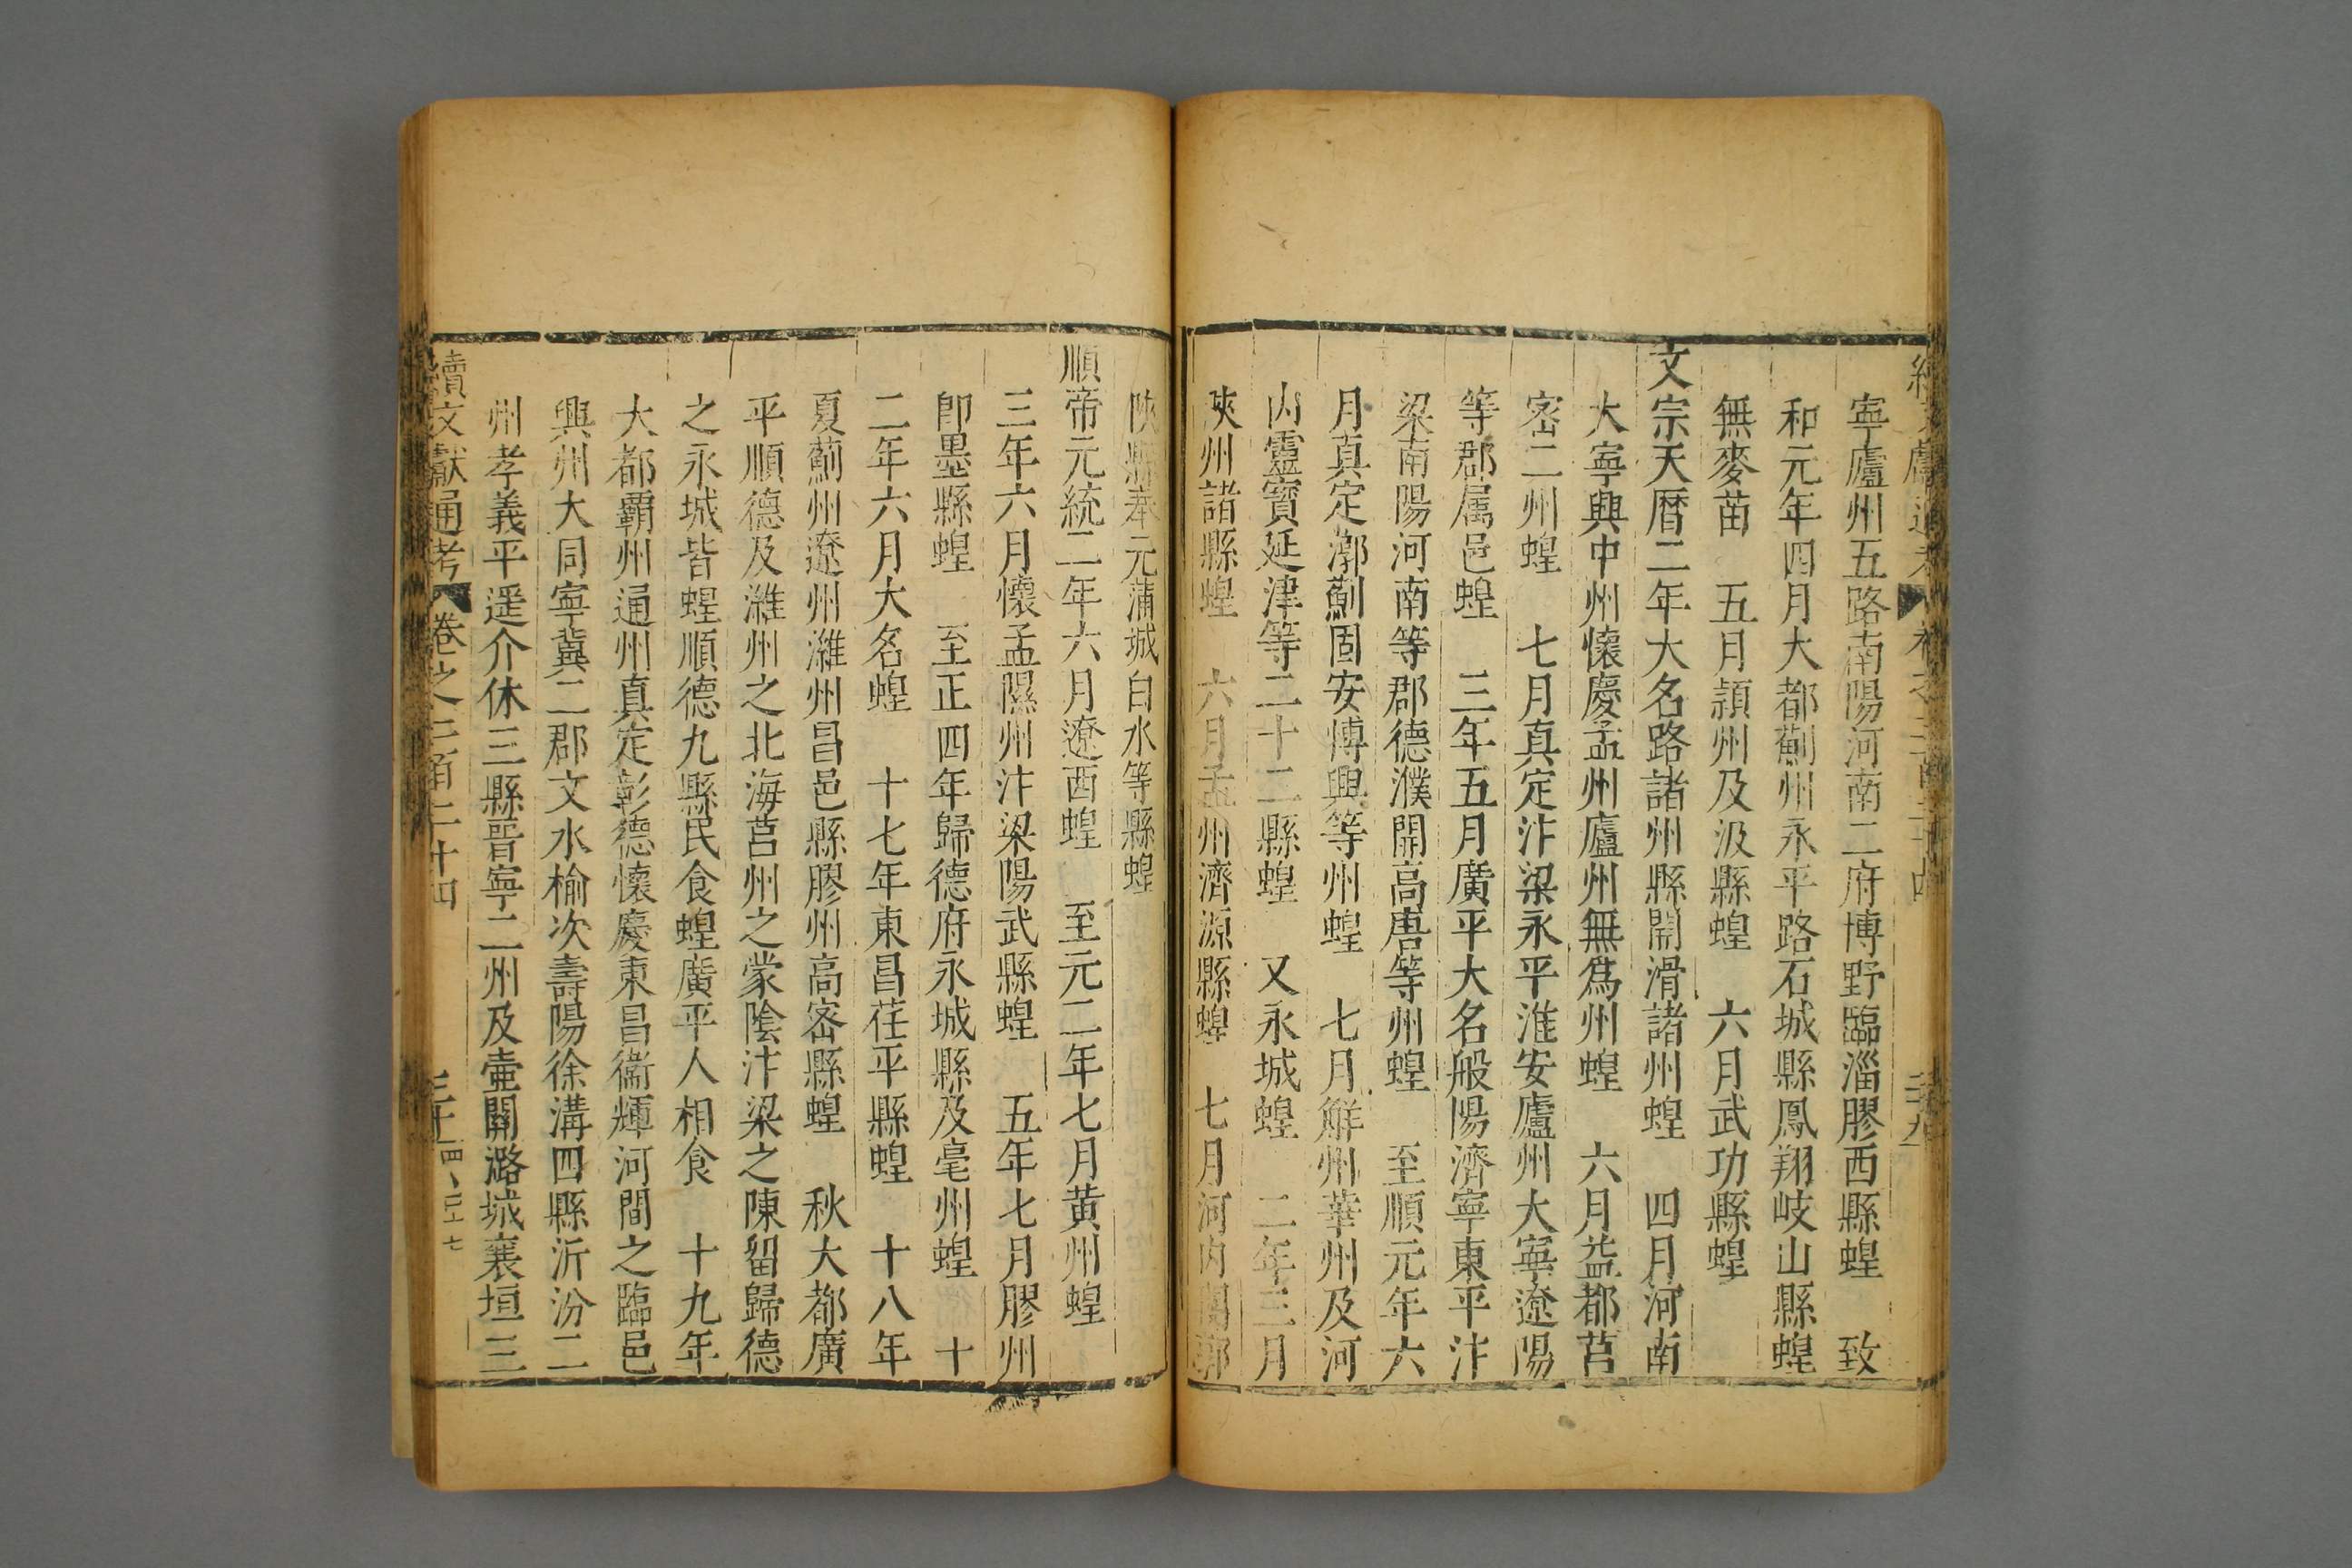 寧廬州五路南陽河南二府博野臨淄膠西縣蝗　致
和元年四月大都薊州永平路石城縣鳳翔岐山縣蝗
無麥苗　五月潁州及汲縣蝗　六月武功縣蝗
文宗天曆二年大名路諸州縣開滑諸州蝗　四月河南
大寧興中州懷慶孟州廬州無爲州蝗　六月益都莒
密二州蝗　七月真定汴梁永平淮安廬州大寧遼陽
等郡属邑蝗　三年五月廣平大名般陽濟寧東平汴
梁南陽河南等郡德濮開高唐等州蝗　至順元年六
月真定漷薊固安博興等州蝗　七月觧州華州及河
内靈寳延津等二十二縣蝗　又永城蝗　二年三月
陜州諸縣蝗　六月孟州濟源縣蝗　七月河内閿鄉
陜縣奉元蒲城白水等縣蝗
順帝元統二年六月遼西蝗　至元二年七月黄州蝗
三年六月懷孟隰州汴梁陽武縣蝗　五年七月膠州
卽墨縣蝗　至正四年歸德府永城縣及亳州蝗　十
二年六月大名蝗　十七年東昌茌平縣蝗　十八年
夏薊州遼州濰州昌邑縣膠州高密縣蝗　秋大都廣
平順德及濰州之北海莒州之蒙陰汴梁之陳留歸德
之永城皆蝗順德九縣民食蝗廣平人相食　十九年
大都霸州通州真定彰德懷慶東昌衞輝河間之臨邑
興州大同寧冀二郡文水榆次壽陽徐溝四縣沂汾二
州孝義平遥介休三縣晋寧二州及壷關潞城襄垣三
續文獻通考　卷之三百二十四